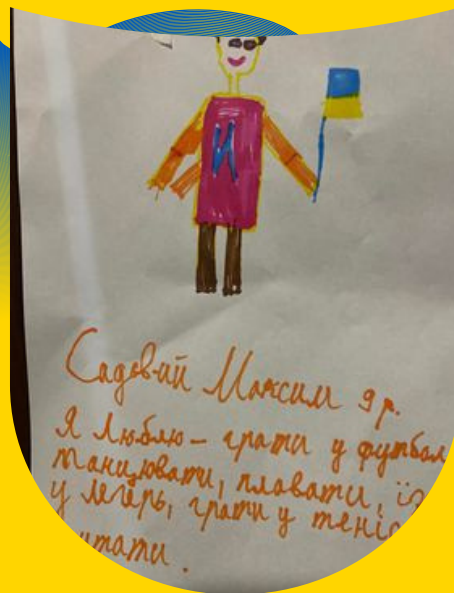 Садовий Максим 9 р.
Я люблю - грати у футбол
танцювати, плавати,
у легерь, грати у теніс